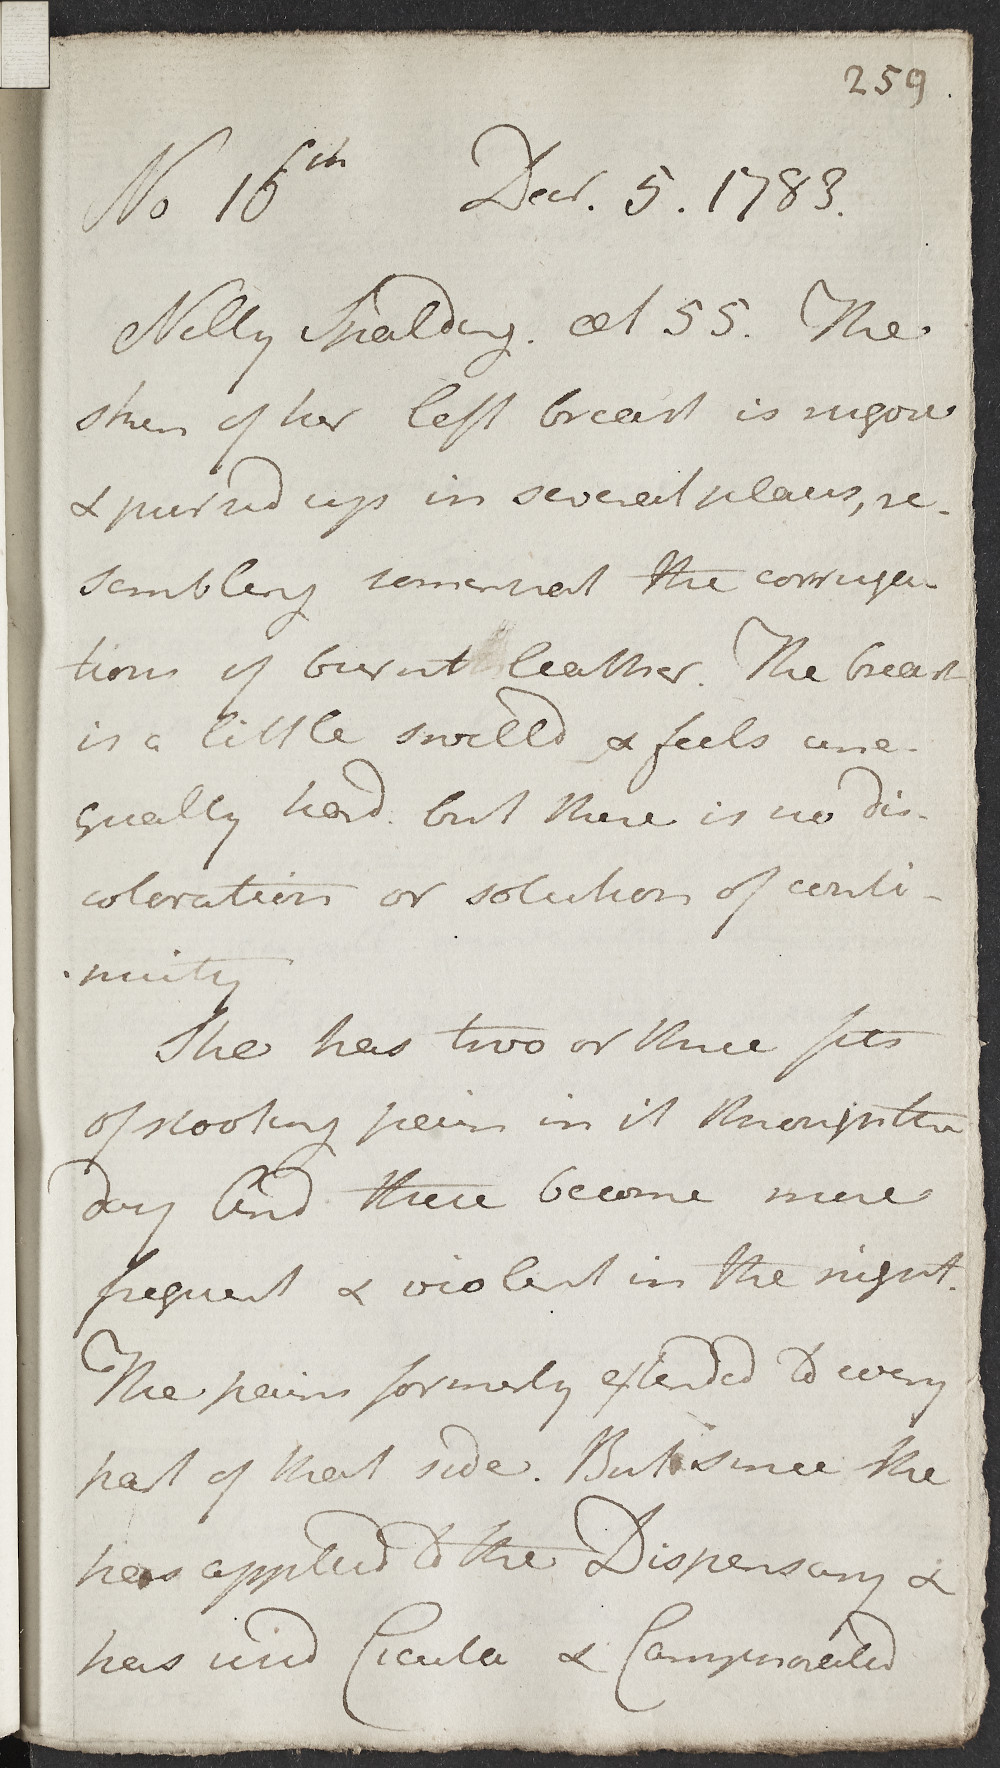 259
No 16th Decr. 5. 1783.
Nelly Spalding. æt 55. The
skin of her left breast is rugous
& pursed up in several places, re-
sembling somewhat the corruga-
tions of burnt leather. The breast
is a little swelld & feels une-
qually hard. but there is no dis-
coloration or solution of conti-
nuity
She has two or three fits
of shooting pain in it through the
day And these become more
frequent & violent in the night.
The pains formerly extended to every
part of that side. But since she
has applied to the Dispensary &
has used Cicuta & Camphorated